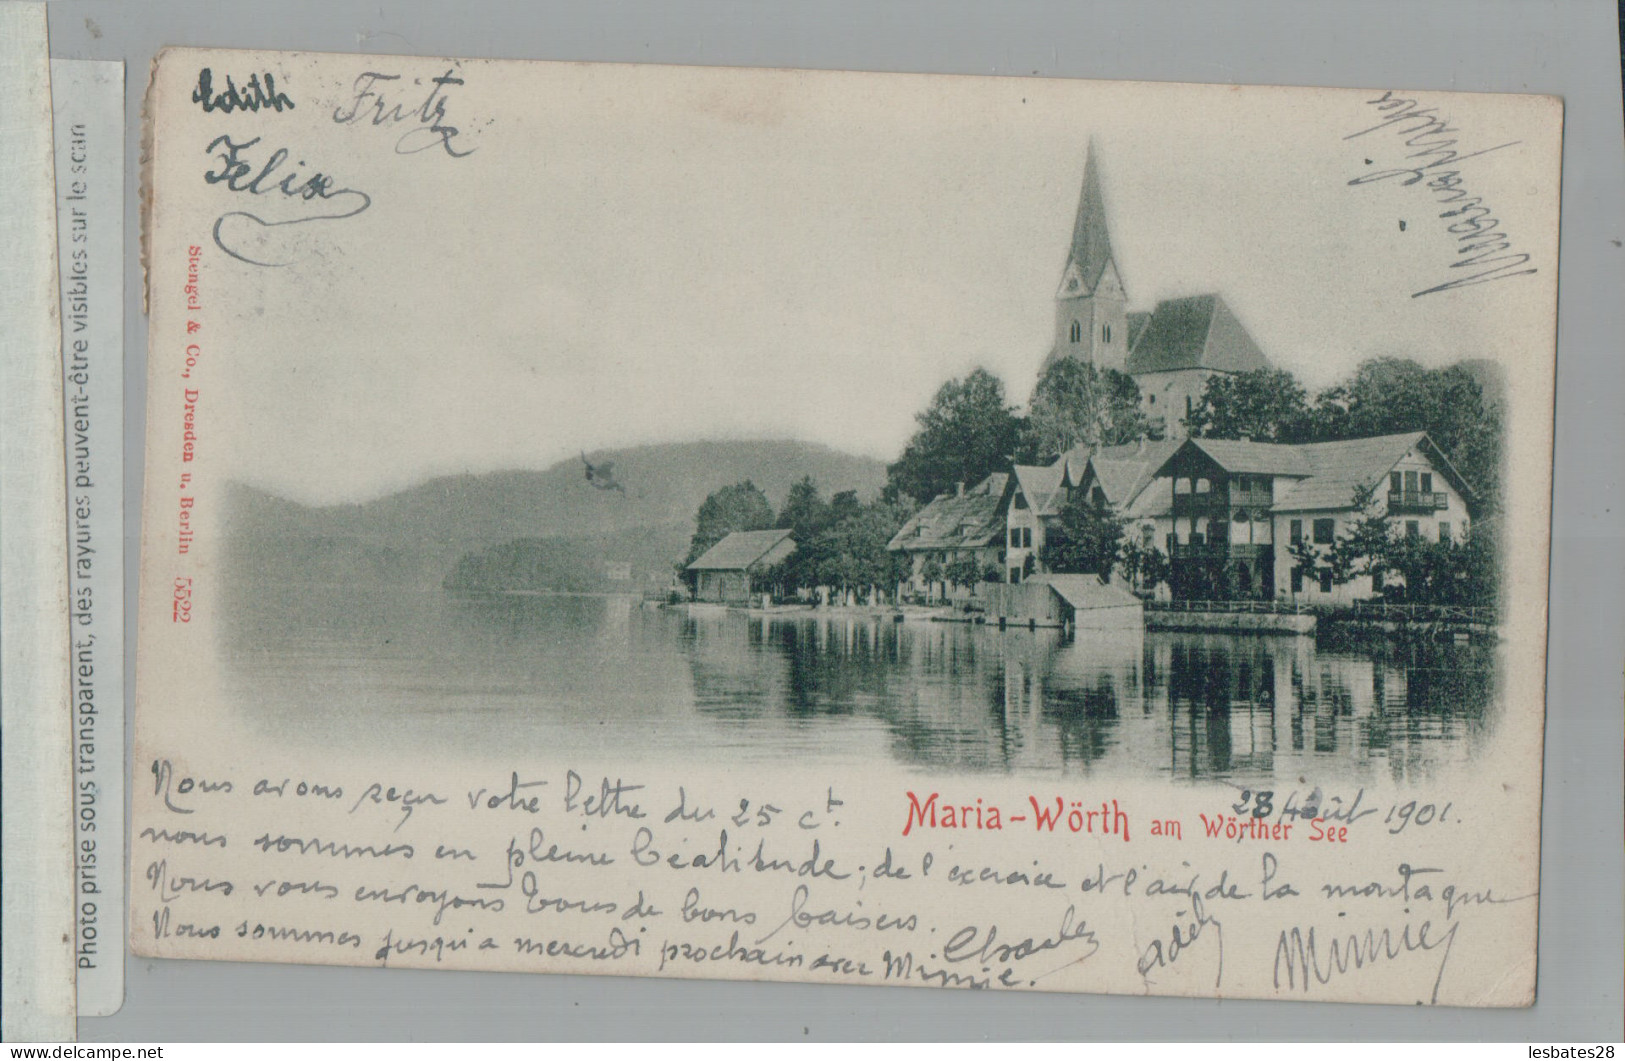 Edith Fritz
Felix
Stengel & Co., Dresden u. Berlin 5522
Maria-Wörth am Wörther See
28 Août 1901.
Nous avons reçu votre lettre du 25 ct.
nous sommes en pleine béatitude; de l'exercice et l'air de la montagne
Nous vous envoyons tous de bons baisers.
Nous sommes jusqu'à mercredi prochain avec Mimie.
Charles Adèle Mimie
Photo prise sous transparent, des rayures peuvent-être visibles sur le scan
lesbates28